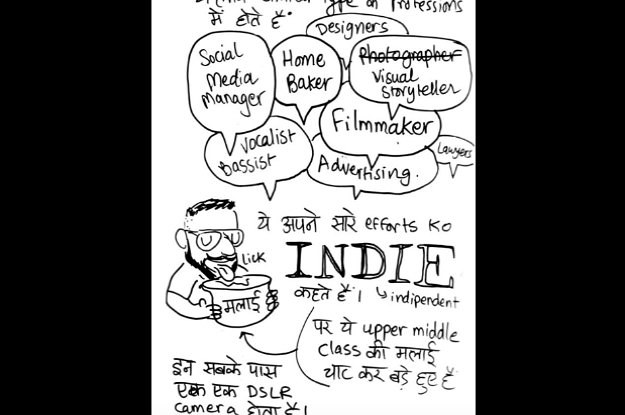 Type के Professions
में होते हैं:
Designers
Social
Media
manager
Home
Baker
Photographer
Visual
Storyteller
Filmmaker
Vocalist
Bassist
Advertising.
Lawyers
ये अपने सारे efforts ko
INDIE
कहते हैं। indipendent
Lick
मलाई
पर ये upper middle
class की मलाई
चाट कर बड़े हुए हैं
इन सबके पास
एक एक DSLR
camera होता है।